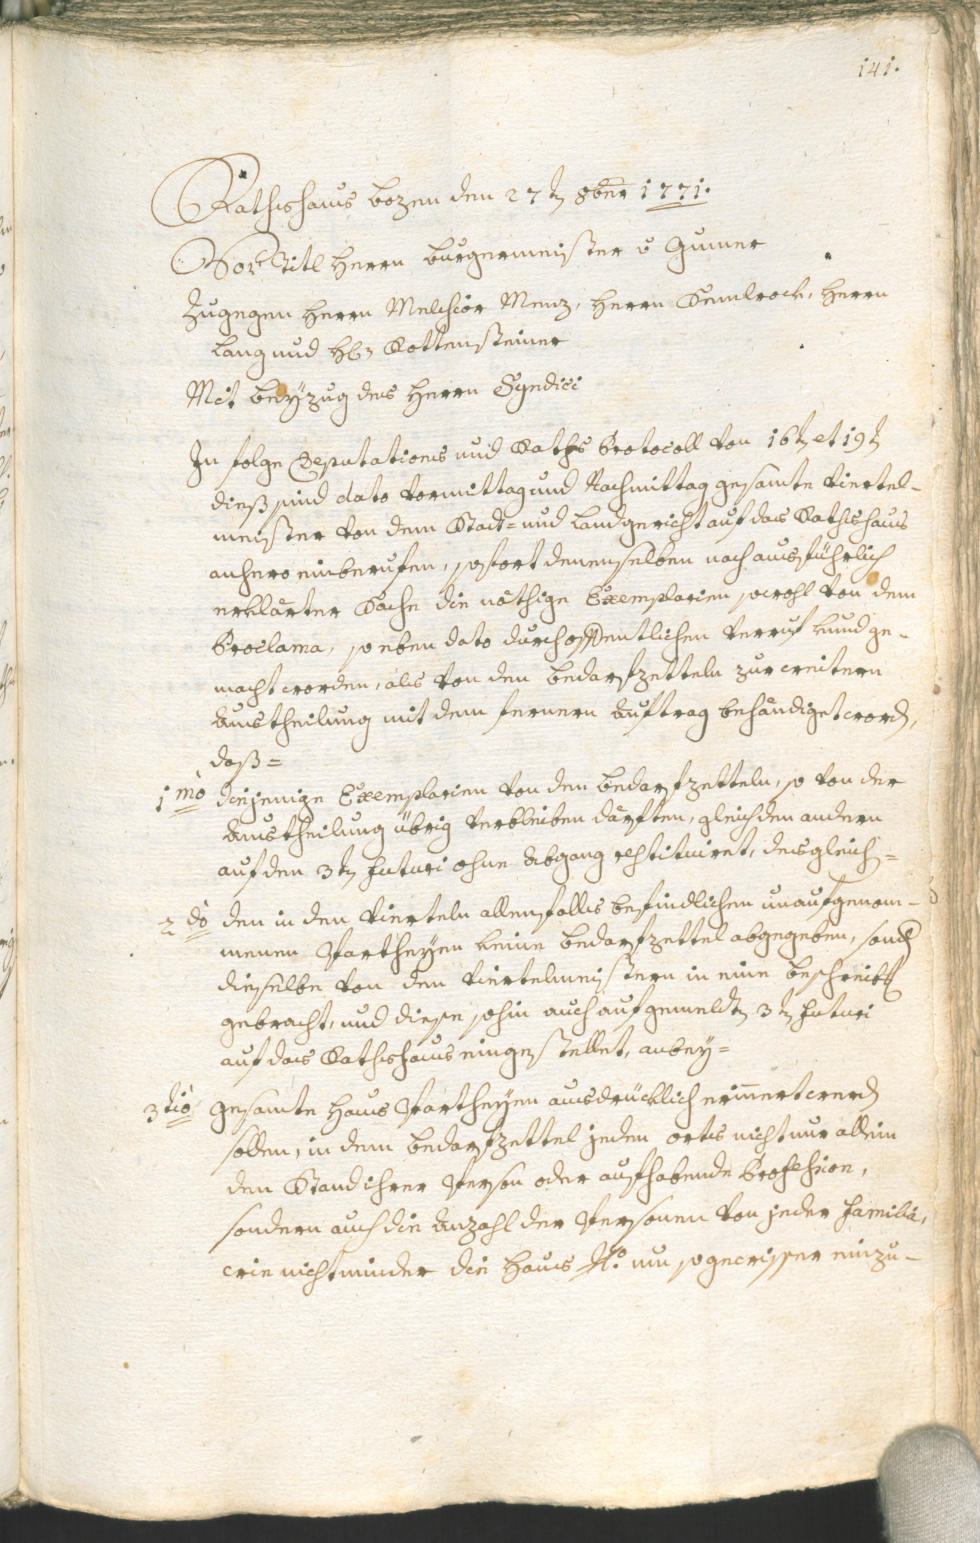 141.
Rathshaus bozen den 27t 8ber 1771.
Vor Titl herrn burgermeister v Gumer
Zugegen herrn Melchior Menz, herrn Kemlrock, herrn
lang und hl Rottensteiner
Mit beÿzug des herrn Syndici
In folge Deputations und Raths Protocoll von 16t et 19t
dieß sind dato vormittag und Nachmittag gesamte viertel-
meister von dem Stadt= und landgericht auf das Rathshaus
anhero einberufen, sofort denenselben nach ausführlich
erklärter Sache die nöthige Exemplarien sowohl von dem
Proclama, so eben dato durch offentlichen verruf kund ge-
macht worden, als von den bedarfzetteln zur weitern
Austheilung mit dem fernern auftrag behändiget word,
daß=
1mo diejenige Exemplarien von den bedarfzetteln, so von der
Austheilung übrig verbleiben därften, gleich den andern
auf den 3t futuri ohne abgang restituiret, desgleich=
2do den in den vierteln allenfalls befindlichen unaufgenom-
menen Partheyen keine bedarfzettel abgegeben, sond
dieselbe von den viertelmeistern in eine beschreib
gebracht, und diese sohin auch auf gemeldt 3t futuri
auf das Rathshaus eingestellet, anbey=
3tiò gesamte haus Partheyen ausdrücklich erinnert werd
sollen, in dem bedarfzettel jeden orts nicht nur allein
den Stand ihrer Person oder aufhabende Profession,
sondern auch die Anzahl der Personen von jeder familia,
wie nicht minder die haus No. um so gewisser einzu-